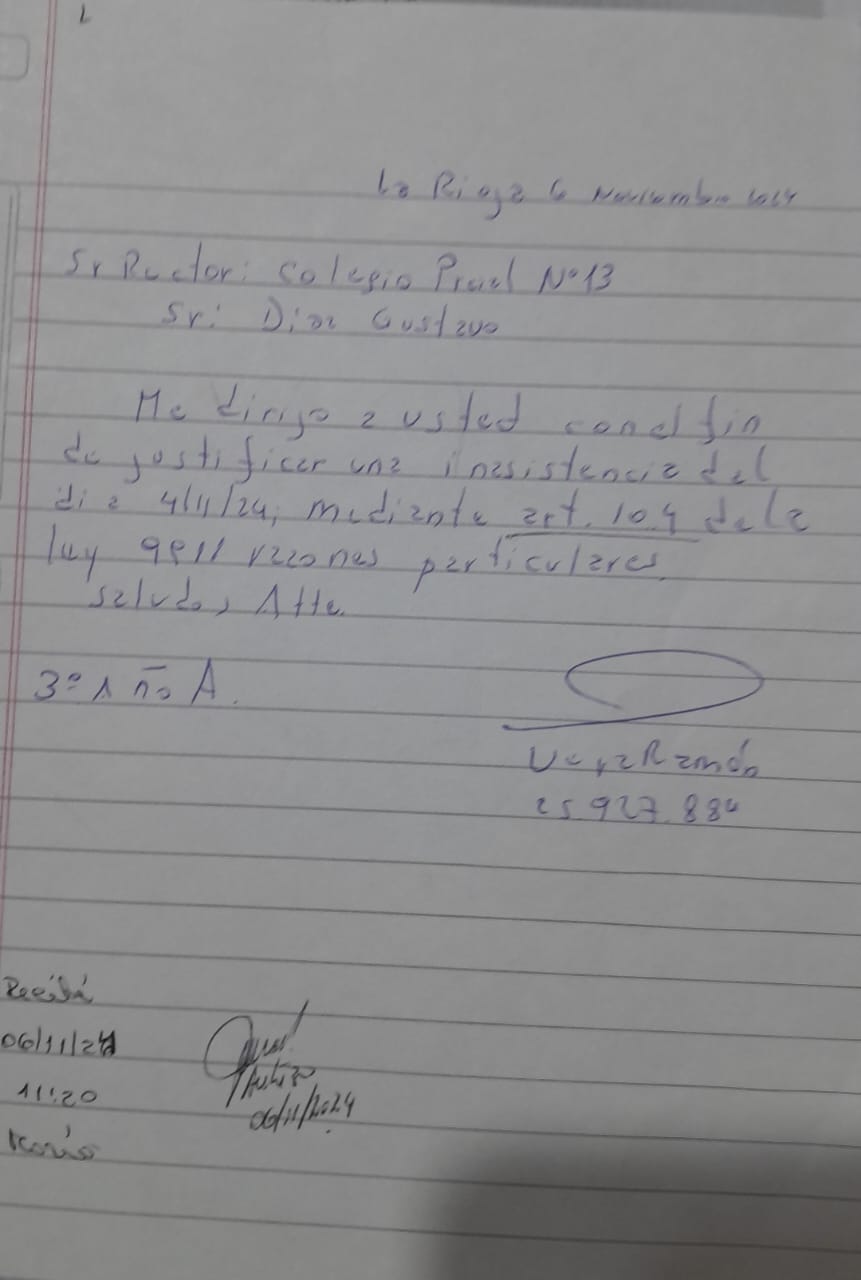 La Rioja 6 Noviembre 2024
Sr Rector: Colegio Provcl N° 13
Sr: Diaz Gustavo
Me dirijo a usted con el fin
de justificar una inasistencia del
dia 4/11/24, mediante art. 10.4 de la
ley 9911 razones particulares.
Saludos Atte.
3° Año A.
Ramón
25.927.884
Recibí
06/11/24
11:20
06/11/2024